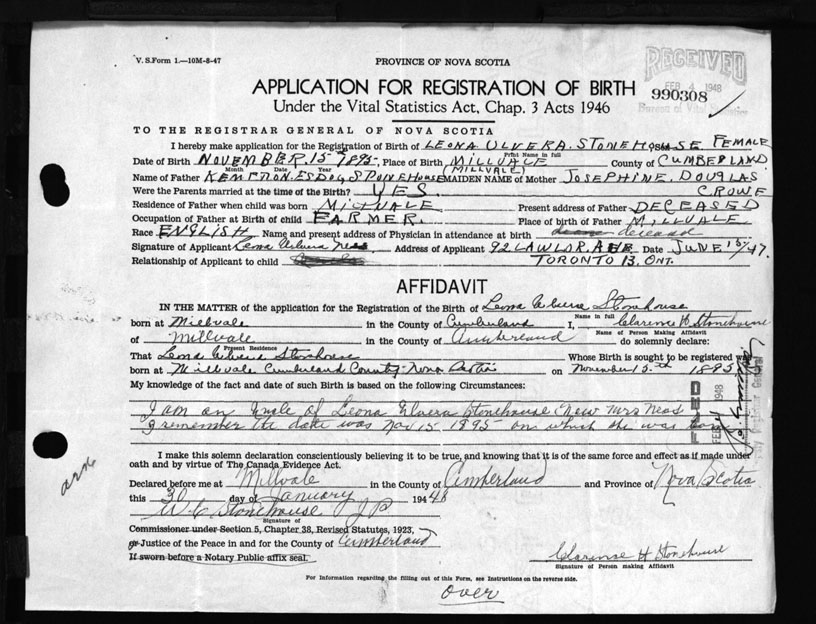 V. S. Form 1.—10M-8-47
PROVINCE OF NOVA SCOTIA
RECEIVED
FEB 4 1948
990308
APPLICATION FOR REGISTRATION OF BIRTH
Under the Vital Statistics Act, Chap. 3 Acts 1946
TO THE REGISTRAR GENERAL OF NOVA SCOTIA
I hereby make application for the Registration of Birth of LEONA ULVERA. STONEHOUSE FEMALE
Print Name in full
Date of Birth NOVEMBER. 15 - 1895, Place of Birth MILLVALE County of CUMBERLAND
Month Date Year (MILLVALE)
Name of Father STONEHOUSE MAIDEN NAME of Mother JOSEPHINE. DOUGLAS
Were the Parents married at the time of Birth? YES. CROWE
Residence of Father when child was born MILLVALE Present address of Father DECEASED
Occupation of Father at Birth of child FARMER. Place of birth of Father MILLVALE
Race ENGLISH Name and present address of Physician in attendance at birth deceased
Signature of Applicant Leona Ulvera Neas Address of Applicant 92 LAWLOR. AVE Date JUNE 15/47.
Relationship of Applicant to child TORONTO 13. ONT.
AFFIDAVIT
IN THE MATTER of the application for the Registration of the Birth of Leona Ulvera Stonehouse
Name in full
born at Millvale in the County of Cumberland I, Clarence H Stonehouse
Name of Person Making Affidavit
of Millvale in the County of Cumberland do solemnly declare:
Present Residence
That Leona Ulvera Stonehouse Whose Birth is sought to be registered was
born at Millvale Cumberland County Nova Scotia on November 15th 1895
My knowledge of the fact and date of such Birth is based on the following Circumstances:
FILED
FEB 4 1948
I am an Uncle of Leona Ulvera Stonehouse (Now Mrs Neas)
I remember the date was Nov 15 1895 on which she was born
I make this solemn declaration conscientiously believing it to be true, and knowing that it is of the same force and effect as if made under
oath and by virtue of The Canada Evidence Act.
Declared before me at Millvale in the County of Cumberland and Province of Nova Scotia
this 30 day of January 1948
W. C Stonehouse J P
Signature of
Commissioner under Section 5, Chapter 38, Revised Statutes, 1923,
or Justice of the Peace in and for the County of Cumberland
If sworn before a Notary Public affix seal.
Clarence H Stonehouse
Signature of Person making Affidavit
For Information regarding the filling out of this Form, see Instructions on the reverse side.
over